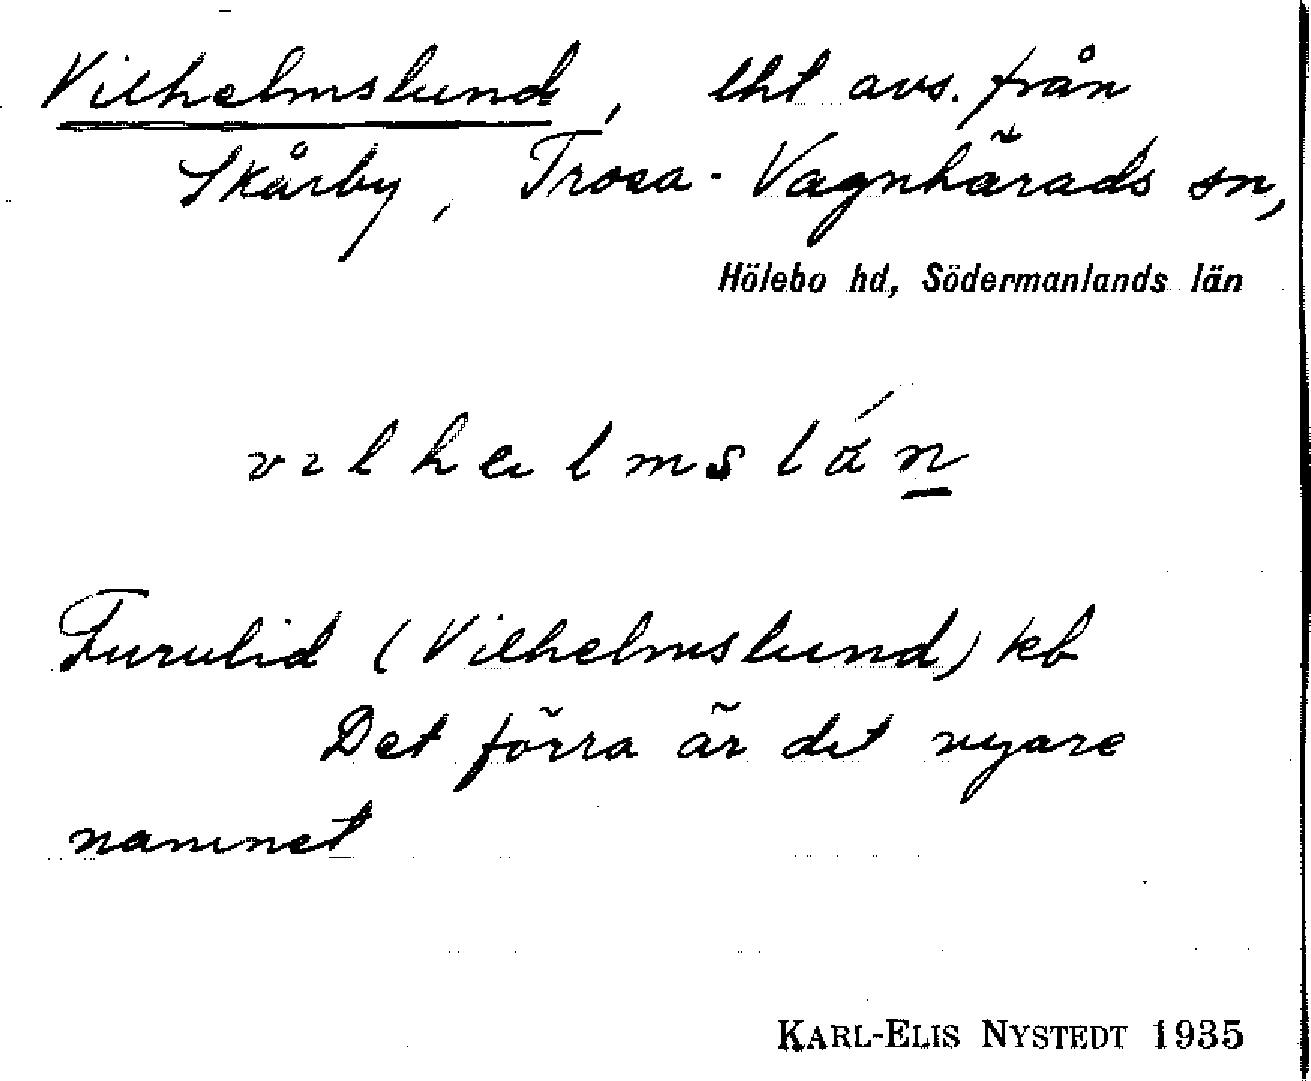 Vilhelmslund, lht avs. från
Skårby, Trosa-Vagnhärads sn,
Hölebo hd, Södermanlands län
Furulid (Vilhelmslund) kb
Det förra är det nyare
namnet
KARL-ELIS NYSTEDT 1935